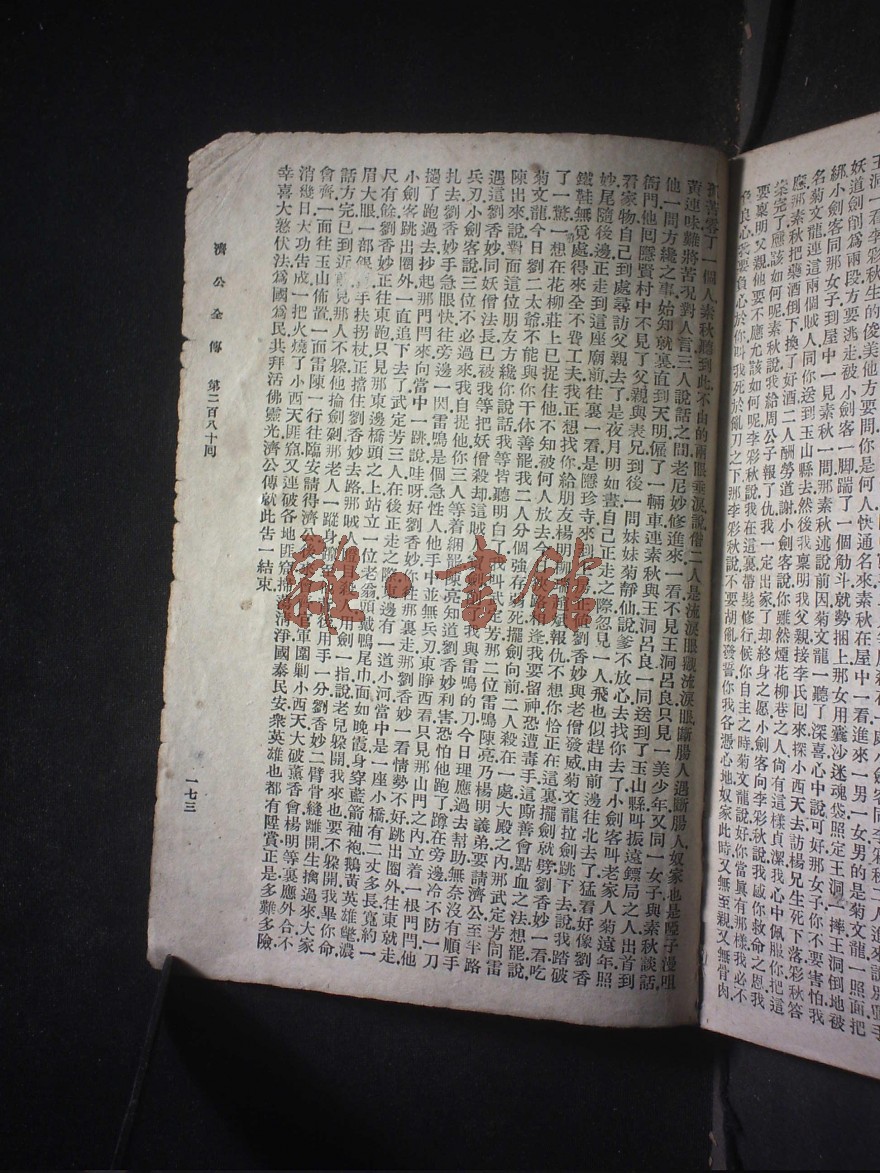 王洞一看李彩秋生的俊美他方要問你是何人
妖道劍削爲兩段方要逃走被小劍客一脚踹了一個觔斗就勢捆上那女用囊沙迷魂袋照定王洞一摔王洞倒地被
綁小劍客同那女子到屋中一見素秋一問那素秋述說前因菊文龍一聽了深喜心中說可好那女子你不要害怕我
名菊文龍連這兩個賊人同你送到玉山縣去然後我稟明我父親接李氏回來探小西天去訪楊兄生死下落彩秋答
應那素秋把藥酒倒換了好酒二人酬勞道謝小劍客說你雖然煙花柳巷之人尙有這樣貞潔我心中佩服你把這
案完了應該如何呢素秋說我給周公子報了仇我一定出家了却終身之愿小劍客向李彩秋說我感你救命之恩我
要稟明父親他要不應尤該如何呢李彩秋說我在這裏帶髮修行候你自主之時菊文龍說好你當眞有那樣我必不
良心要負心於你叫我死於亂刀之下那李彩秋說不要胡亂發誓你我各憑心地奴家此時又無至親又無骨肉
孤苦零丁一個人素秋聽到此不由的兩眼垂淚說偺二人是流淚眼觀流淚眼斷腸人遇斷腸人奴家也是啞子漫咀
黃連味難將苦況對人言三人說話之間老尼妙修進來一看不見王洞呂良只見一美少年又同一女子與素秋談話
他一問方纔之事始知就裏直到天明僱了一輛車連素秋與王洞呂良一同送到了玉山縣叫振遠鏢局之人出首到
衙門他回隱賢村中不見了父親與表兄到後一問妹妹菊靜仙說爹不放心去找你去了小劍客叫老家人菊遠年照
看家物自己到處尋訪父親去了是夜月明如晝自己正走之際忽見一人飛也似趕由前邊往北去了猛看好像劉香
妙尾隨後邊正走到這座廟前往裏一看是應珍寺來劉香妙與老僧發威菊文龍拉劍跳下去說我踏破
鐵鞋無覓處得來全不費工夫我正想找你給朋友楊明報仇不想你恰正在這裏擺劍就劈劉香妙一看吃
了一驚一想在花柳莊上已捉住他不知被何人放去今逢我要留神恐遭毒手這厮善會點血之法想罷說
菊文龍今日劉二太爺不能與你干休善罷二人分個強存弱死擺劍向前二人殺在一處大殿之內那武定芳同雷
陳出來說對面這位朋友方纔你說話我等皆聽明白了我叫武定芳那二位雷鳴陳亮乃楊明義弟要請濟公至半路
遇這劉香妙同妖僧法長已被我等把妖僧殺却這賊我與雷鳴的刀今日理應過去幫助無奈沒有順手
兵刃小劍客說三位不必過來我自捉他你三人等着綑罷陳亮知道劉香妙利害恐怕他跑了蹲在旁邊冷不防一刀
扎去劉香妙手急眼快往旁邊一閃雷鳴是個急性人他手中並無兵刃東睜西看只見那山門之內立着一根門門他
過了跑過去抄起那門門來向當中一跳說哇呀好劉香妙你往那裏走那劉香妙一看情勢不好跳出圈外往東就走
小劍客跳出圈外一直追下去了武定芳三人在後正走之際邊有一道小河當中是一座小橋有二丈多長寬約一
尺有餘劉香妙正往東跑只見那東邊橋頭之上站立一位老翁頭戴鴨尾巾面如晚霞身穿藍箭袖袍鵝黃英雄氅濃
眉大眼一部銀髯手扶拐杖正擋住劉香妙去路那賊人用劍一指說老兒躱開我來也要不躱開我畢你命
話方完已到近前見那人不躱他掄劍剁那老人一蹤身後用手一分劉香妙二臂骨縫離開生擒過來大家
會齊一面往玉山佈置一面雷陳一行往臨安請得濟公官軍圍剿小西天大破薰香會楊明等裏應外合不
消幾日大功告成一把火燒了小西天匪窟又連破各地匪窟掃淸淨國泰民安衆英雄也都有陞賞正是多難多險
幸喜大慾伏法爲國爲民共拜活佛靈光濟公傳就此告一結束
濟公全傳 第二百八十回 一七三
雜·書館